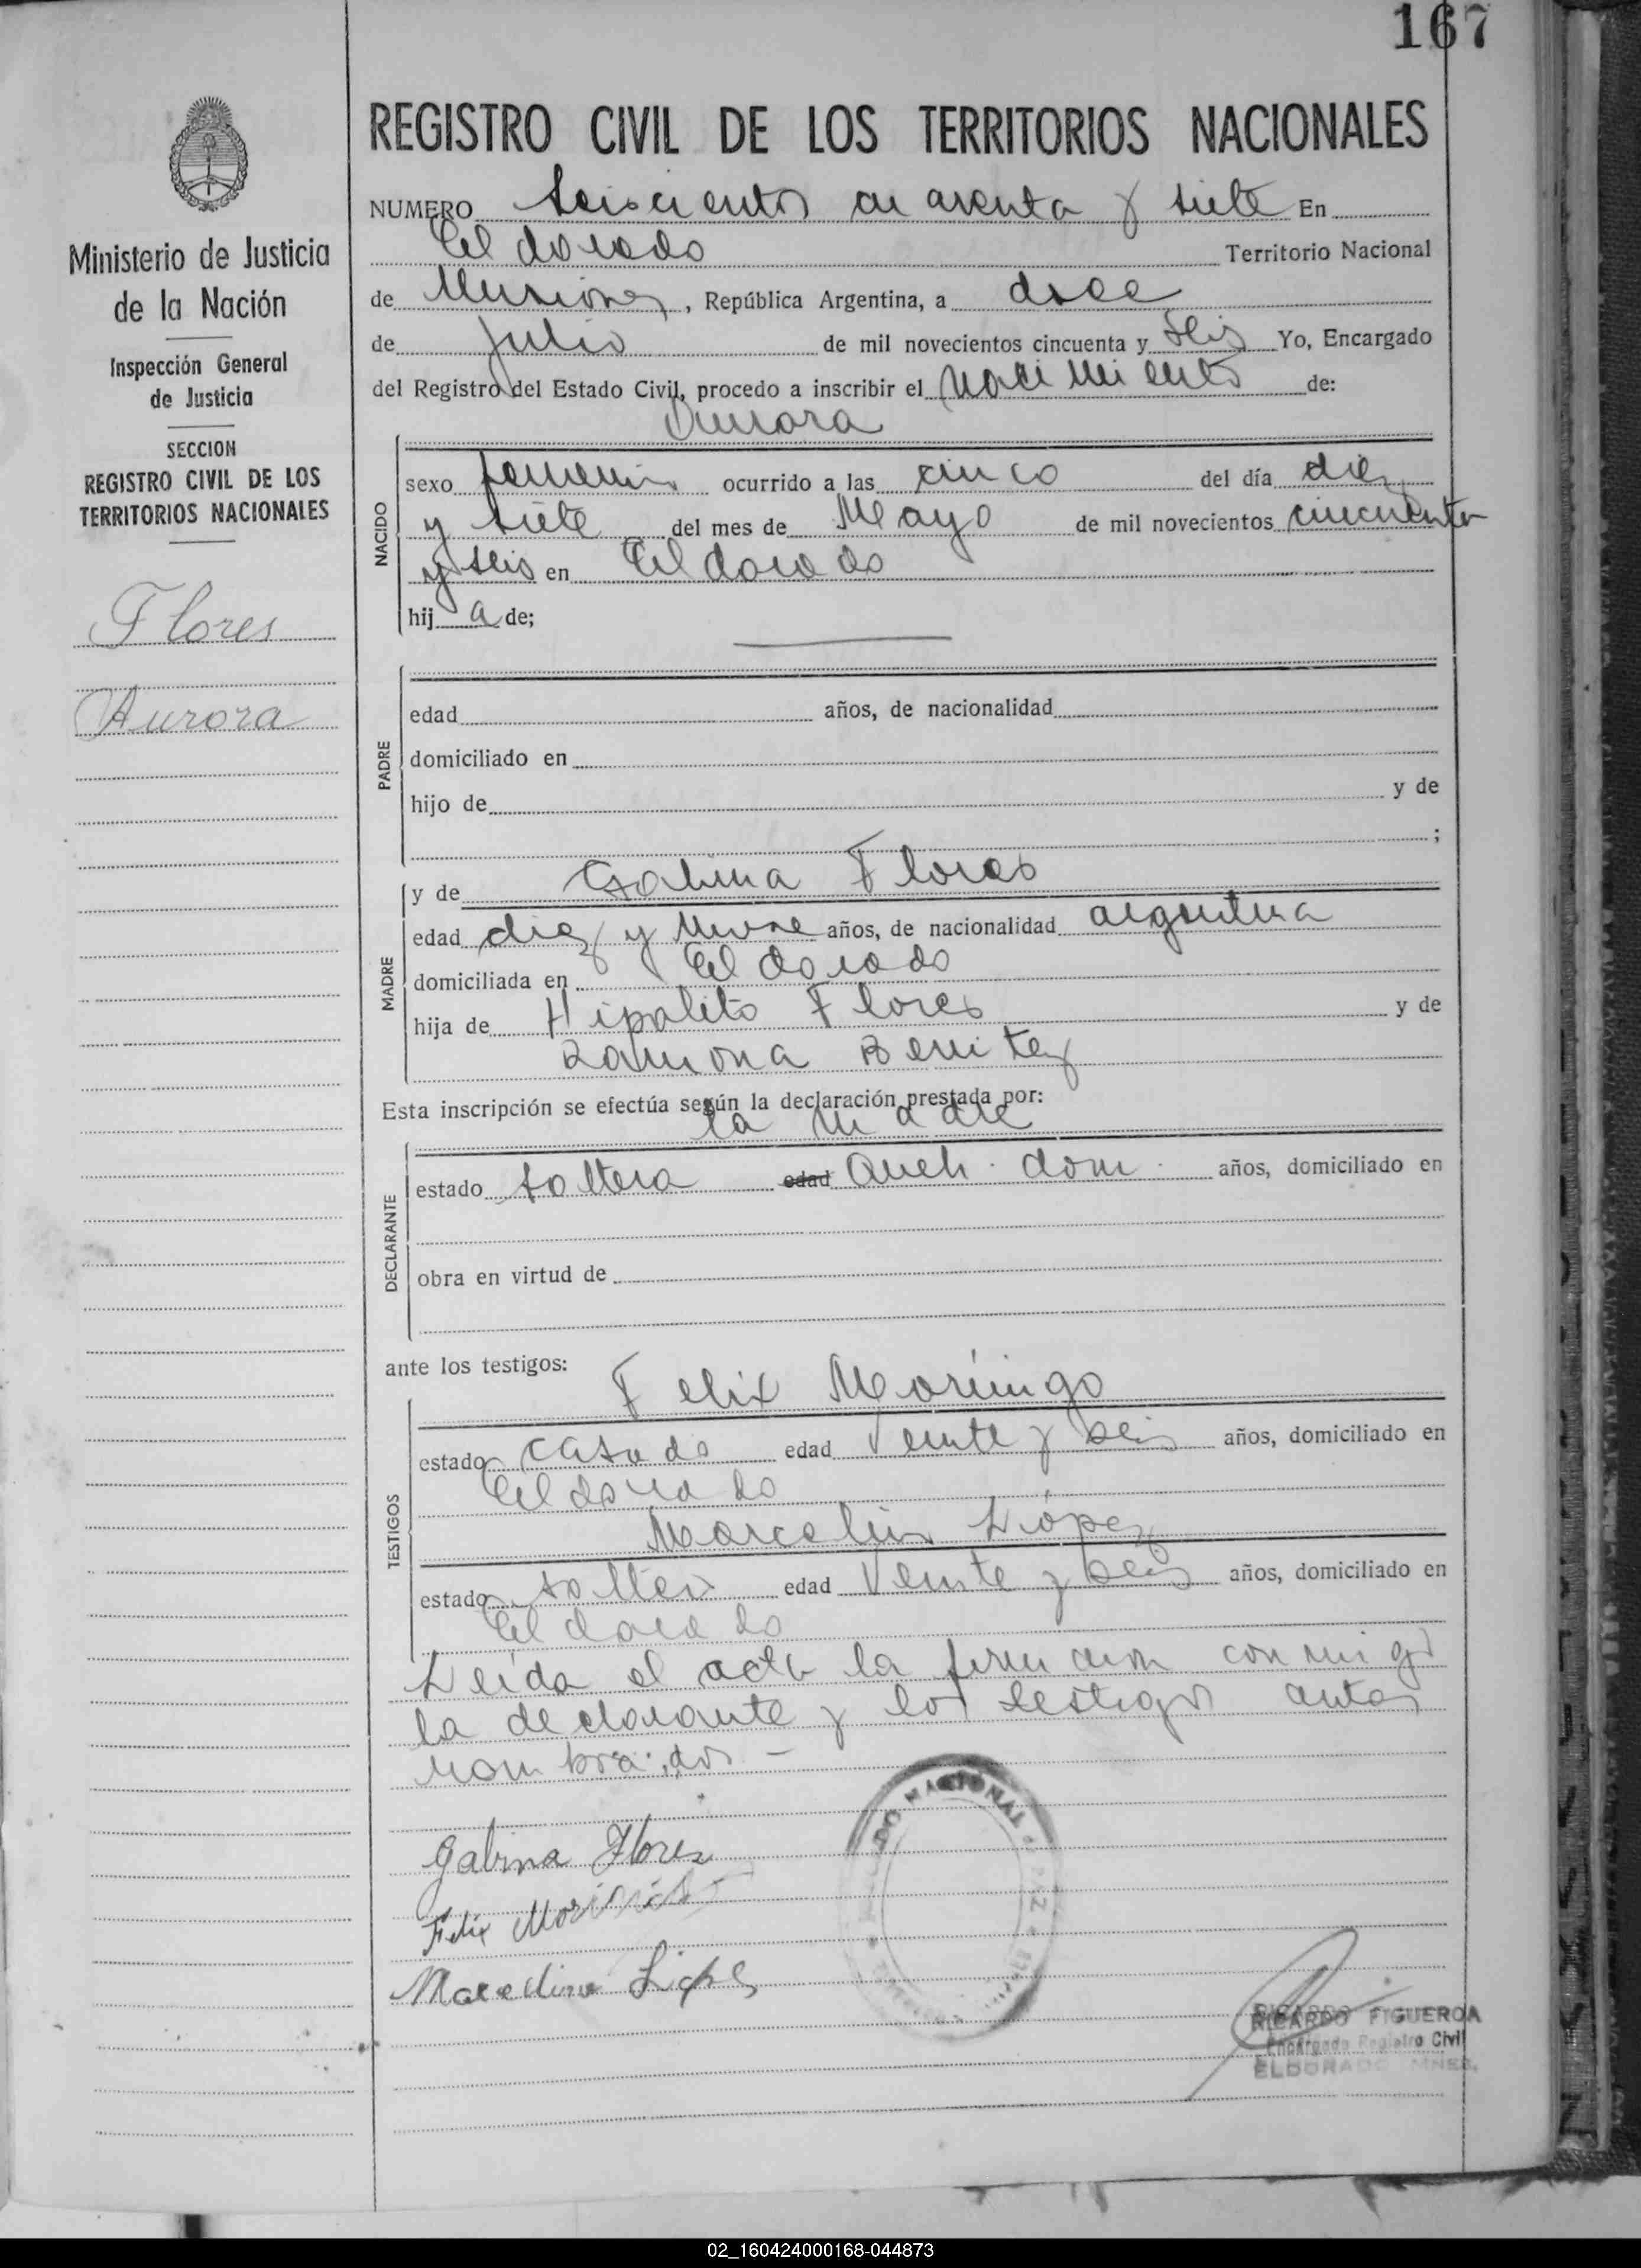 167
REGISTRO CIVIL DE LOS TERRITORIOS NACIONALES
Ministerio de Justicia
de la Nación
Inspección General
de Justicia
SECCION
REGISTRO CIVIL DE LOS
TERRITORIOS NACIONALES
Flores
Aurora
NUMERO Seiscientos cuarenta y siete En
Eldorado Territorio Nacional
de Misiones, República Argentina, a doce
de Julio de mil novecientos cincuenta y seis Yo, Encargado
del Registro del Estado Civil, procedo a inscribir el nacimiento de:
Aurora
NACIDO
sexo femenino ocurrido a las cinco del día diez
y siete del mes de Mayo de mil novecientos cincuenta
y seis en Eldorado
hij a de;
PADRE
edad años, de nacionalidad
domiciliado en
hijo de y de
;
MADRE
y de Gabina Flores
edad diez y nueve años, de nacionalidad argentina
domiciliada en Eldorado
hija de Hipolito Flores y de
Ramona Benitez
Esta inscripción se efectúa según la declaración prestada por:
la madre
DECLARANTE
estado soltera edad Queh. dom. años, domiciliado en
obra en virtud de
ante los testigos:
Felix Morinigo
TESTIGOS
estado casado edad Veinte y seis años, domiciliado en
Eldorado
Marcelino López
estado soltero edad Veinte y seis años, domiciliado en
Eldorado
Leída el acta la firman conmigo
la declarante y los testigos antes
nombrados -
Gabina Flores
Felix
Marcelino Lopes
NACIONAL
RICARDO FIGUEROA
Encargado Registro Civil
ELDORADO MNES.
02_160424000168-044873